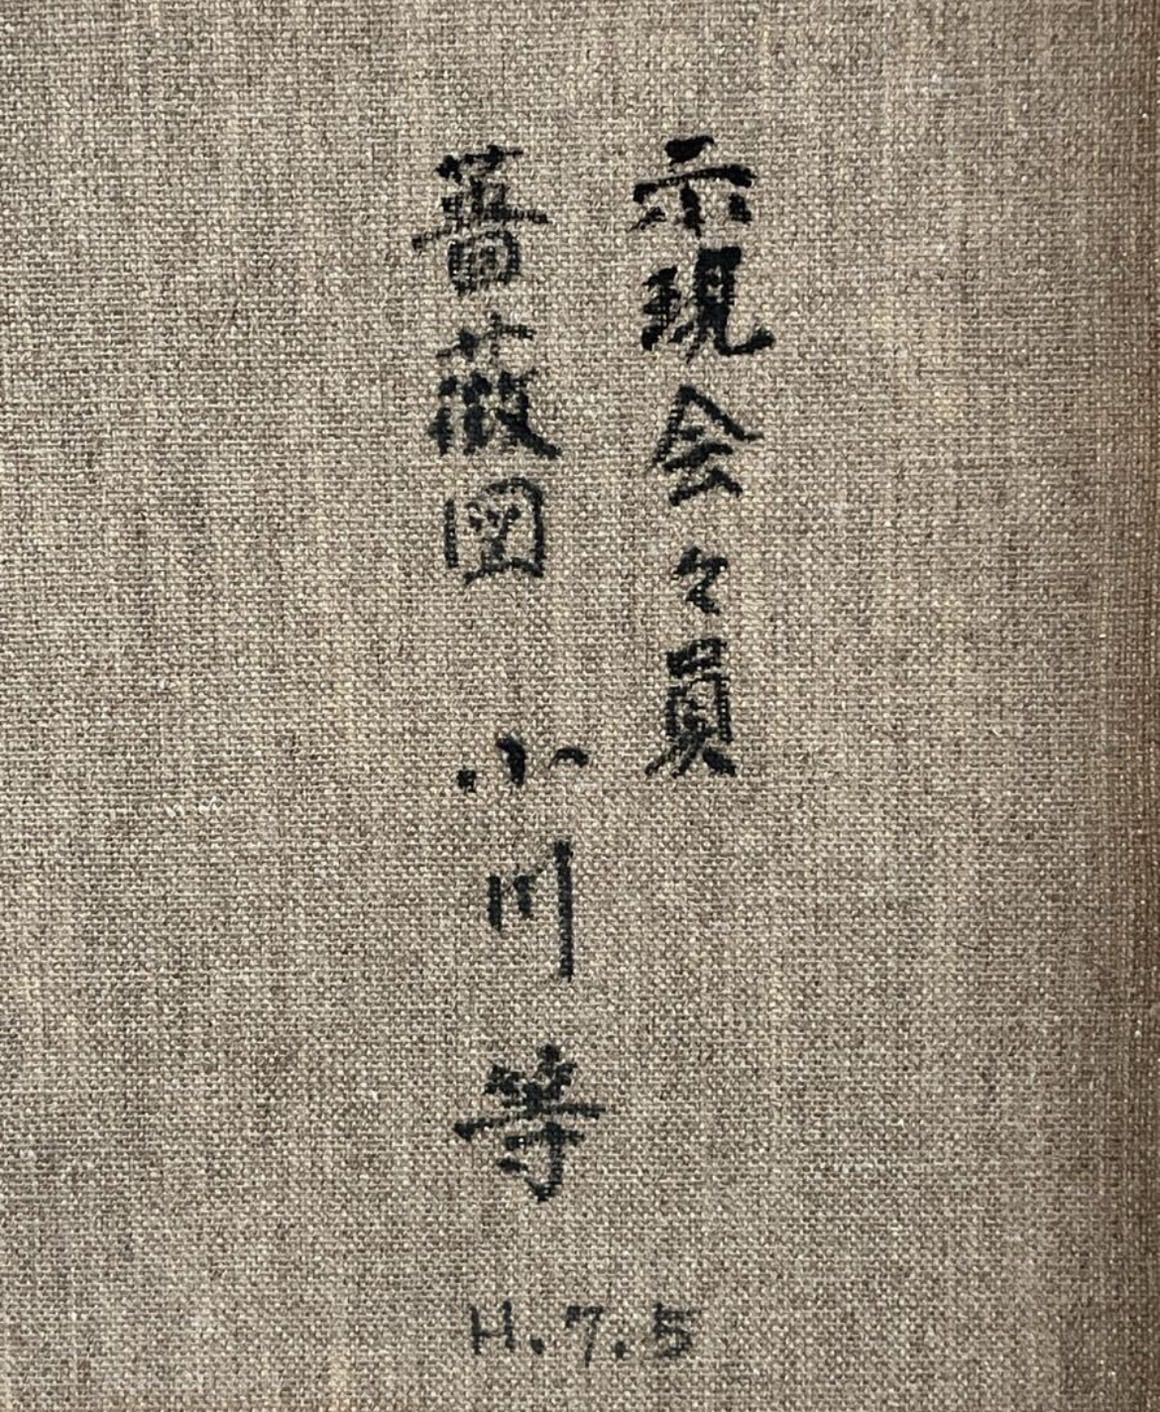 示現会々員
薔薇図 小川等
H.7.5